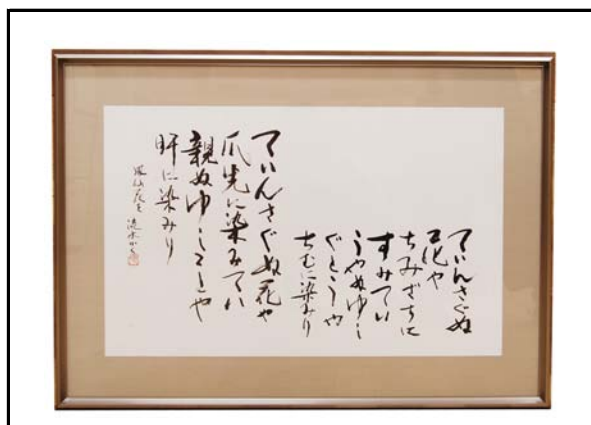 てぃんさぐぬ
花や
ちみざちに
すみてぃ
うやぬゆし
ぐとぅや
ちむに染みり
てぃんさぐぬ花や
爪先に染みてぃ
親ぬゆしごとや
肝に染みり